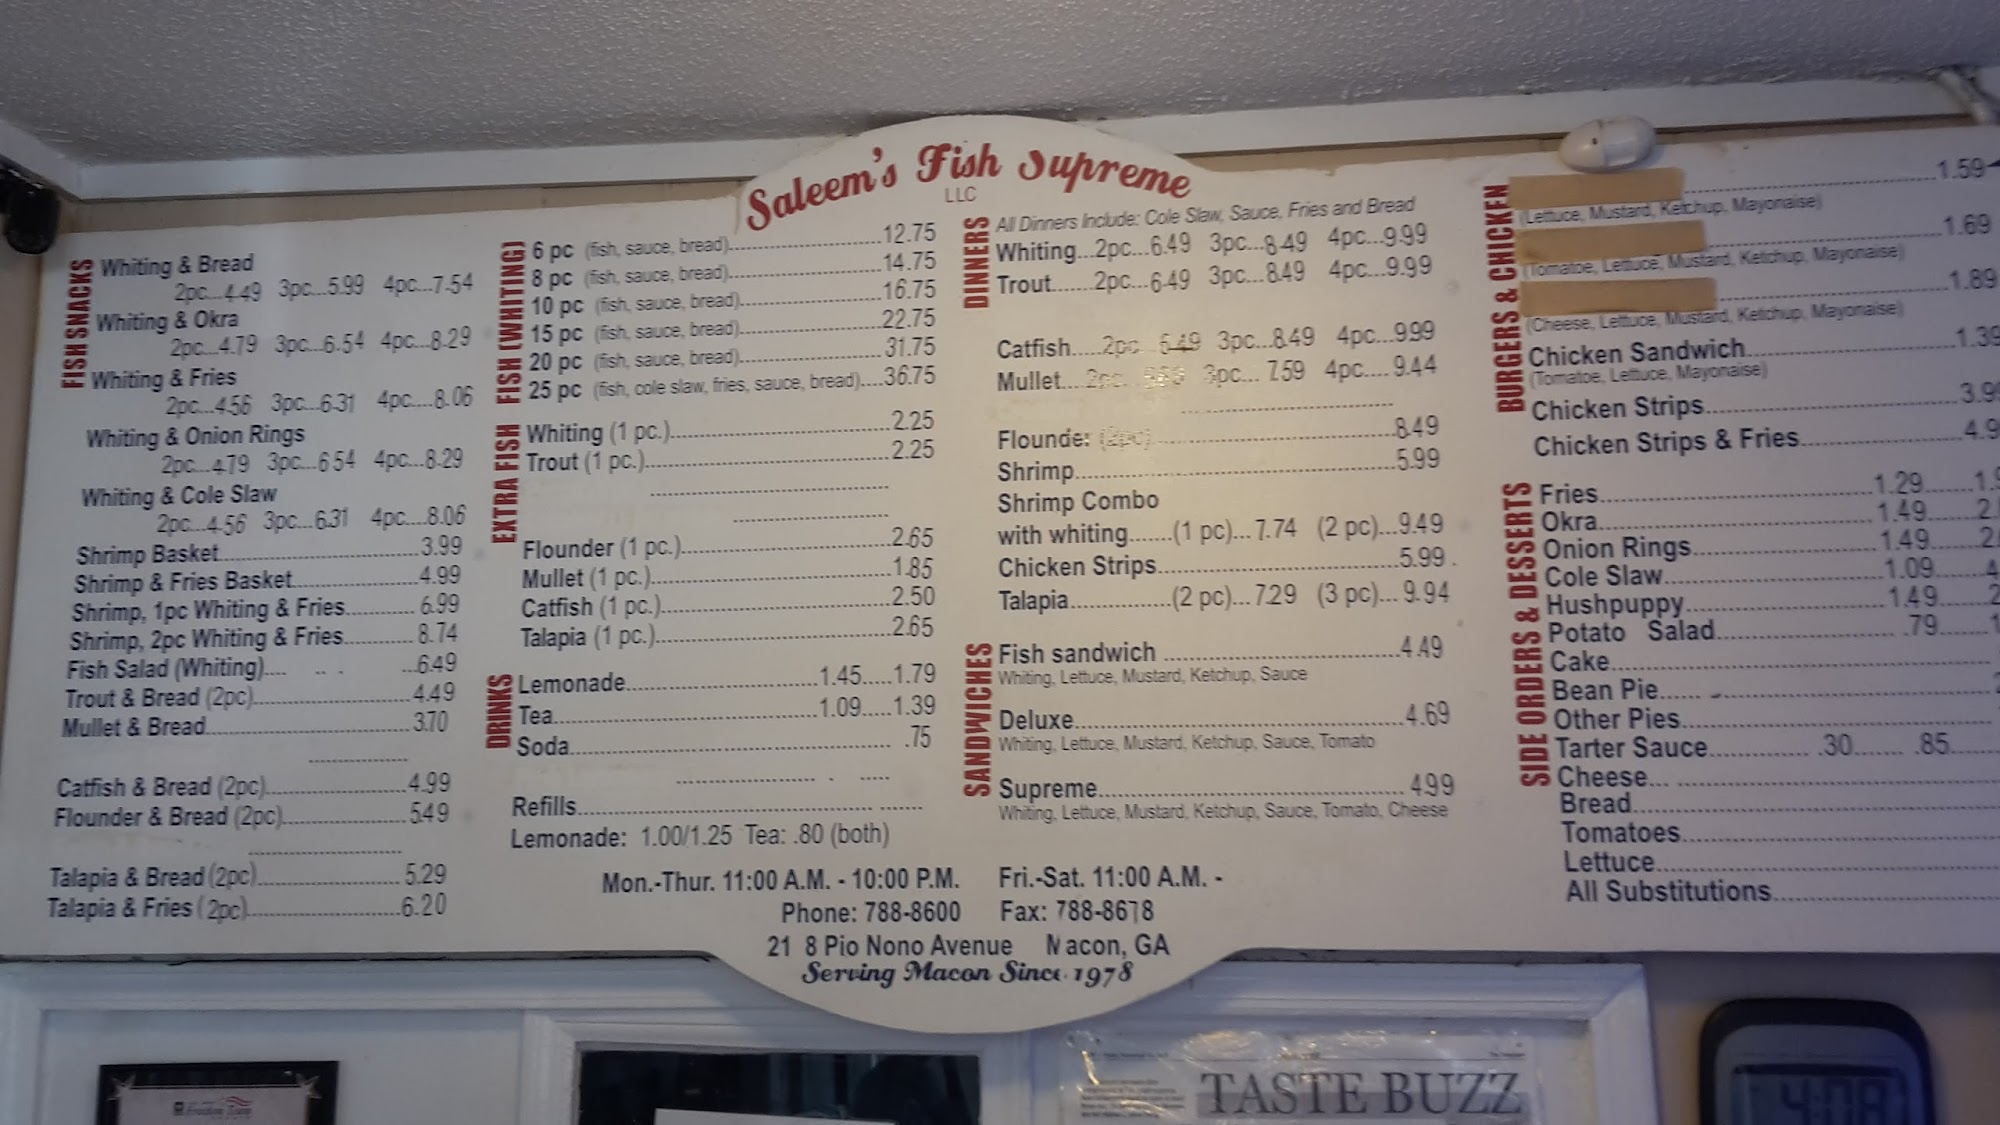 Saleem's Fish Supreme
LLC
FISH SNACKS
Whiting & Bread
2pc...4.49 3pc...5.99 4pc...7.54
Whiting & Okra
2pc...4.79 3pc...6.54 4pc...8.29
Whiting & Fries
2pc...4.56 3pc...6.31 4pc....8.06
Whiting & Onion Rings
2pc...4.79 3pc...6.54 4pc...8.29
Whiting & Cole Slaw
2pc...4.56 3pc...6.31 4pc....8.06
Shrimp Basket...3.99
Shrimp & Fries Basket...4.99
Shrimp, 1pc Whiting & Fries...6.99
Shrimp, 2pc Whiting & Fries...8.74
Fish Salad (Whiting)...6.49
Trout & Bread (2pc)...4.49
Mullet & Bread...3.70
Catfish & Bread (2pc)...4.99
Flounder & Bread (2pc)...5.49
Talapia & Bread (2pc)...5.29
Talapia & Fries (2pc)...6.20
FISH (WHITING)
6 pc (fish, sauce, bread)...12.75
8 pc (fish, sauce, bread)...14.75
10 pc (fish, sauce, bread)...16.75
15 pc (fish, sauce, bread)...22.75
20 pc (fish, sauce, bread)...31.75
25 pc (fish, cole slaw, fries, sauce, bread)....36.75
EXTRA FISH
Whiting (1 pc.)...2.25
Trout (1 pc.)...2.25
Flounder (1 pc.)...2.65
Mullet (1 pc.)...1.85
Catfish (1 pc.)...2.50
Talapia (1 pc.)...2.65
DRINKS
Lemonade...1.45.....1.79
Tea...1.09.....1.39
Soda....75
Refills...
Lemonade: 1.00/1.25 Tea: .80 (both)
DINNERS
All Dinners Include: Cole Slaw, Sauce, Fries and Bread
Whiting...2pc...6.49 3pc...8.49 4pc...9.99
Trout......2pc...6.49 3pc...8.49 4pc...9.99
Catfish.....2pc 3pc...8.49 4pc...9.99
Mullet....2pc 3pc... 7.59 4pc.... 9.44
Flounde: (2pc)...8.49
Shrimp...5.99
Shrimp Combo
with whiting.......(1 pc)... 7.74 (2 pc)...9.49
Chicken Strips...5.99
Talapia...(2 pc)... 7.29 (3 pc)... 9.94
SANDWICHES
Fish sandwich ...4.49
Whiting, Lettuce, Mustard, Ketchup, Sauce
Deluxe...4.69
Whiting, Lettuce, Mustard, Ketchup, Sauce, Tomato
Supreme...4.99
Whiting, Lettuce, Mustard, Ketchup, Sauce, Tomato, Cheese
BURGERS & CHICKEN
...1.59
(Lettuce, Mustard, Ketchup, Mayonaise)
...1.69
(Tomatoe, Lettuce, Mustard, Ketchup, Mayonaise)
...1.89
(Cheese, Lettuce, Mustard, Ketchup, Mayonaise)
Chicken Sandwich...1.39
(Tomatoe, Lettuce, Mayonaise)
Chicken Strips...3.9
Chicken Strips & Fries...4.9
SIDE ORDERS & DESSERTS
Fries...1.29
Okra...1.49
Onion Rings...1.49
Cole Slaw...1.09
Hushpuppy...1.49
Potato Salad....79
Cake...
Bean Pie...
Other Pies...
Tarter Sauce... .30....... .85
Cheese...
Bread...
Tomatoes...
Lettuce...
All Substitutions...
Mon.-Thur. 11:00 A.M. - 10:00 P.M. Fri.-Sat. 11:00 A.M. -
Phone: 788-8600 Fax: 788-8678
21 8 Pio Nono Avenue Macon, GA
Serving Macon Since 1978
TASTE BUZZ
4:08